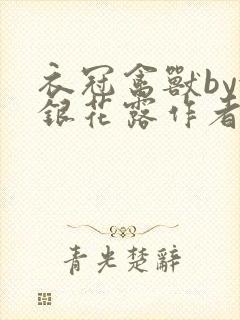 衣冠禽獸by
銀花露作者
青光楚辭